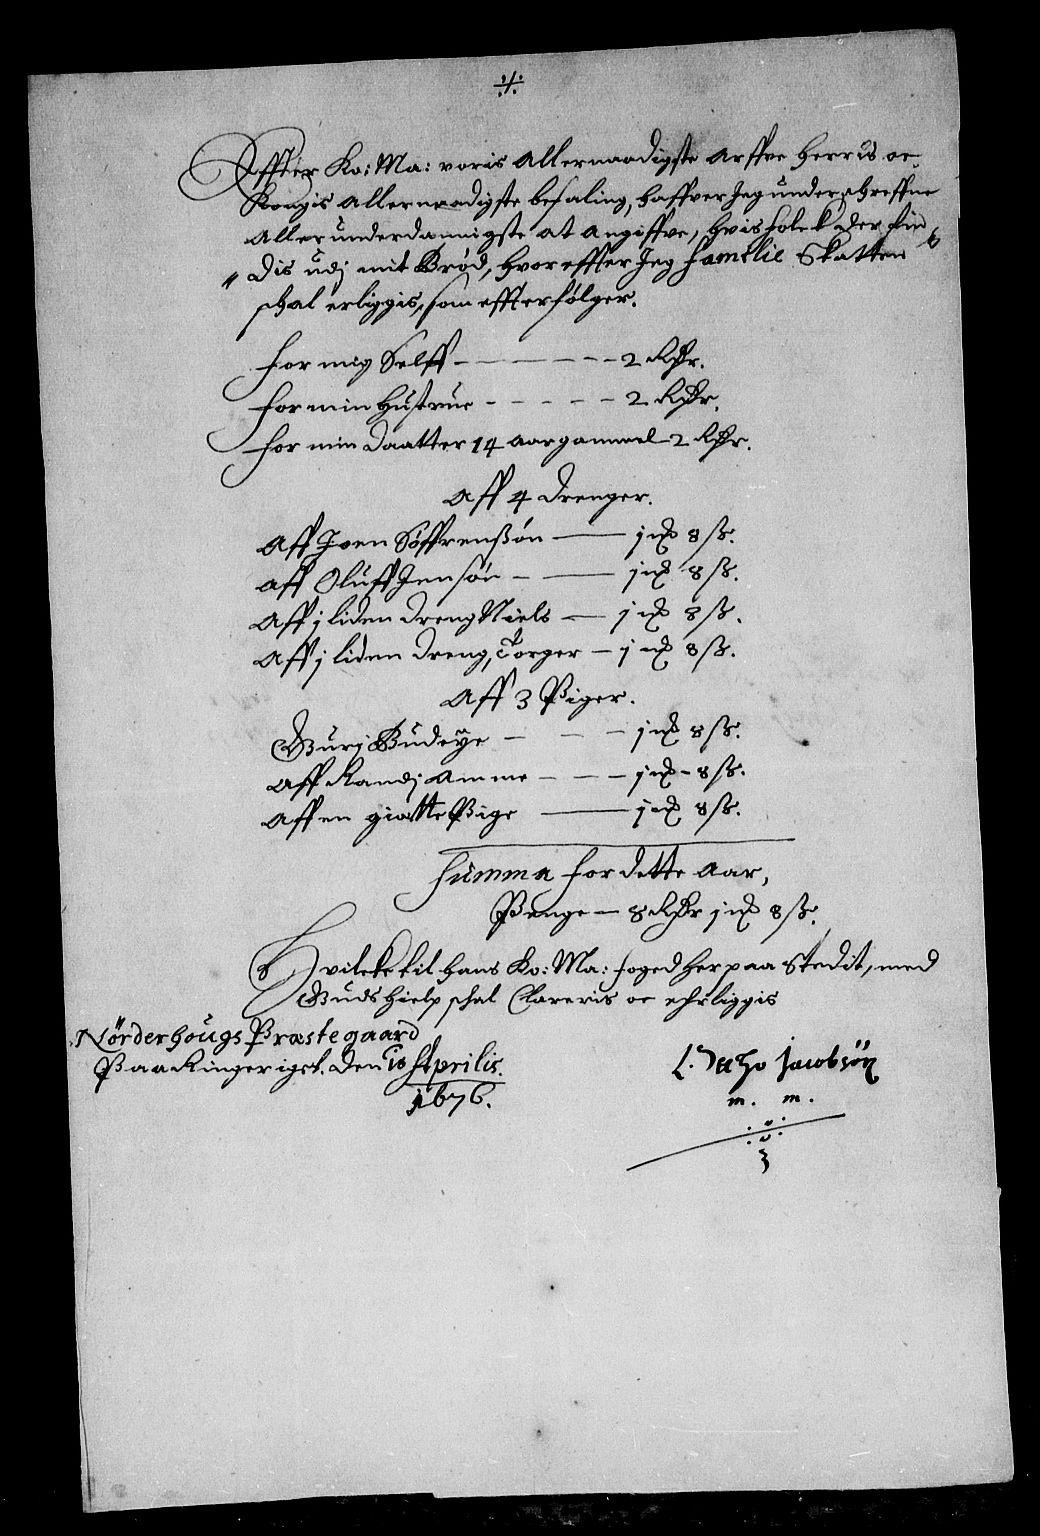 ./.
Effter Ko: Ma: voris Allernaadigste Arffve Herris oc
Kongis Allernaadigste befaling, haffver Jeg underschreffne
Allerunderdannigste at angiffve, hvis folck der fin
dis udj mit Brød, hvoreffter Jeg familie Skatten
schal erliggis, som effterfølger.
For mig Selff - - - - - - 2 Rdr.
For min Hustrue - - - - - 2 Rdr.
For min Daatter 14 aar gammel - 2 Rdr.
Aff 4 Drenger.
Aff Joen Søffrensøn — j ort 8 ß.
Aff Oluff Jensøn - — j ort 8 ß.
Aff j liden dreng Niels — j ort 8 ß.
Aff j liden dreng, Torger — j ort 8 ß.
Aff 3 Piger.
Gurj Budeye - - - j ort 8 ß.
Aff Randj Amme - - - j ort - 8 ß.
Aff en giætte Pige — j ort 8 ß.
Summa for dette Aar,
Penge — 8 Rdr j ort 8 ß.
Hvilcke til hans Ko: Ma: foged her paa Stedit, med
Guds hielp schal Clareris oc ehrliggis
Nörderhougs Præstegaard
Paa Ringerigst. den 10 Aprilis.
1676.
Otho Jacobsøn
m. m.